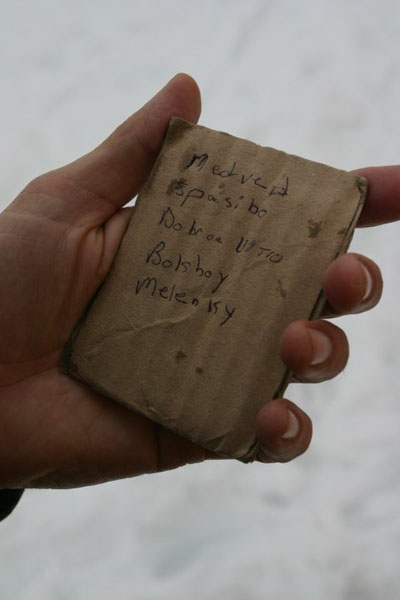 Medved
Spasibo
Dobroe Utro
Bolshoy
Melenky